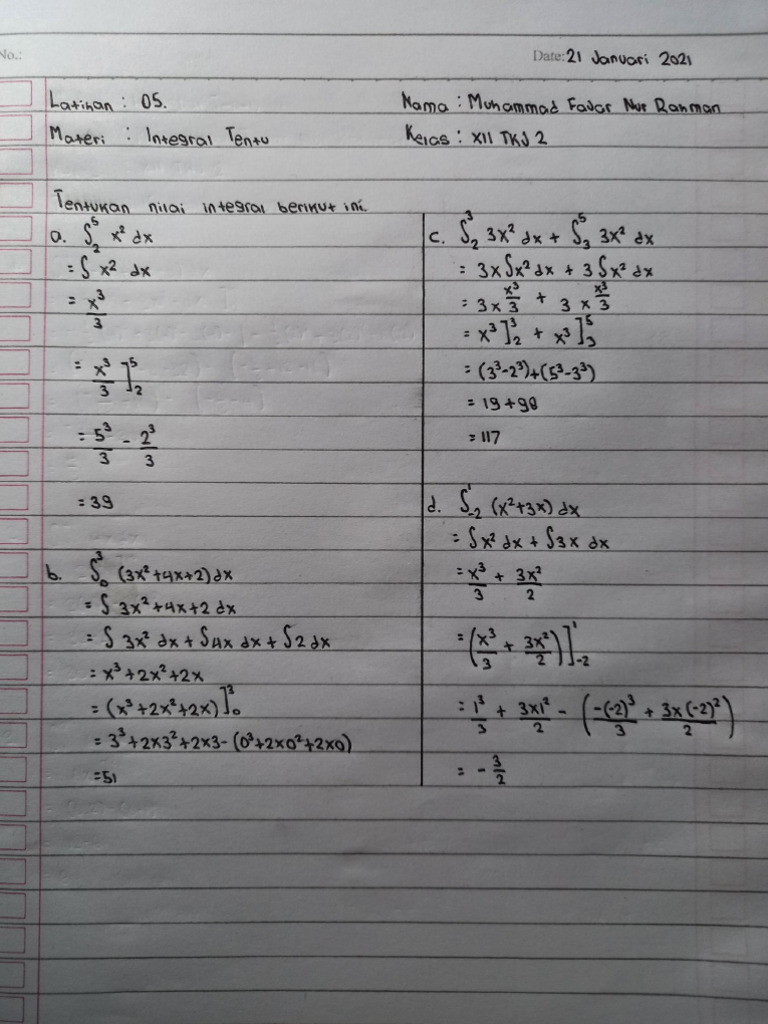 No.:
Date: 21 Januari 2021
Latihan : 05.
Nama : Muhammad Fajar Nur Rahman
Materi : Integral Tentu
Kelas : XII TKJ 2
Tentukan nilai integral berikut ini.
a. ∫₂⁵ x² dx
= ∫ x² dx
= x³/3
= x³/3 ]₂⁵
= 5³/3 - 2³/3
= 39
b. ∫₀³ (3x²+4x+2) dx
= ∫ 3x²+4x+2 dx
= ∫ 3x² dx + ∫4x dx + ∫2 dx
= x³+2x²+2x
= (x³+2x²+2x) ]₀³
= 3³+2x3²+2x3-(0³+2x0²+2x0)
=51
c. ∫₂³ 3x² dx + ∫₃⁵ 3x² dx
= 3x∫x² dx + 3∫x² dx
= 3 x x³/3 + 3 x x³/3
= x³]₂³ + x³]₃⁵
= (3³-2³)+(5³-3³)
= 19+98
= 117
d. ∫₋₂¹ (x²+3x) dx
= ∫x² dx + ∫3x dx
= x³/3 + 3x²/2
= (x³/3 + 3x²/2) ]₋₂¹
= 1³/3 + 3x1²/2 - (-(-2)³/3 + 3x(-2)²/2)
= - 3/2